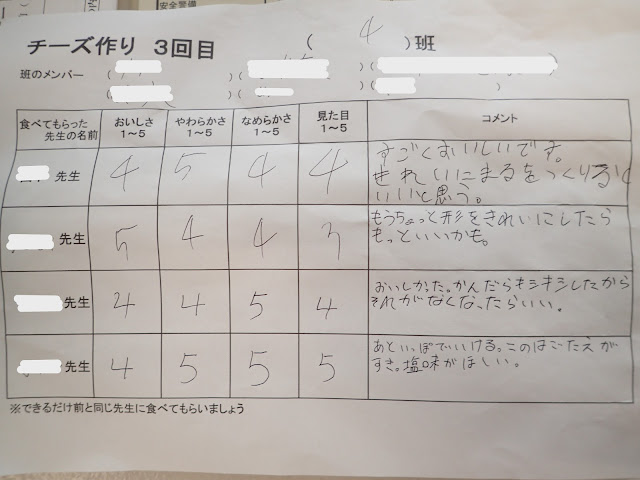 安全警備
チーズ作り 3回目 ( 4 )班
班のメンバー ( )( )( )
( )( )( )
食べてもらった先生の名前 おいしさ1~5 やわらかさ1~5 なめらかさ1~5 見た目1~5 コメント
先生 4 5 4 4 すごくおいしいです。
きれいにまるをつくりるく
いいと思う。
先生 5 4 4 3 もうちょっと形をきれいにしたら
もっといいかも。
先生 4 4 5 4 おいしかった。かんだらキシキシしたから
それがなくなったらいい。
先生 4 5 5 5 あといっぽでいける。このはごたえが
すき。塩味がほしい。
※できるだけ前と同じ先生に食べてもらいましょう